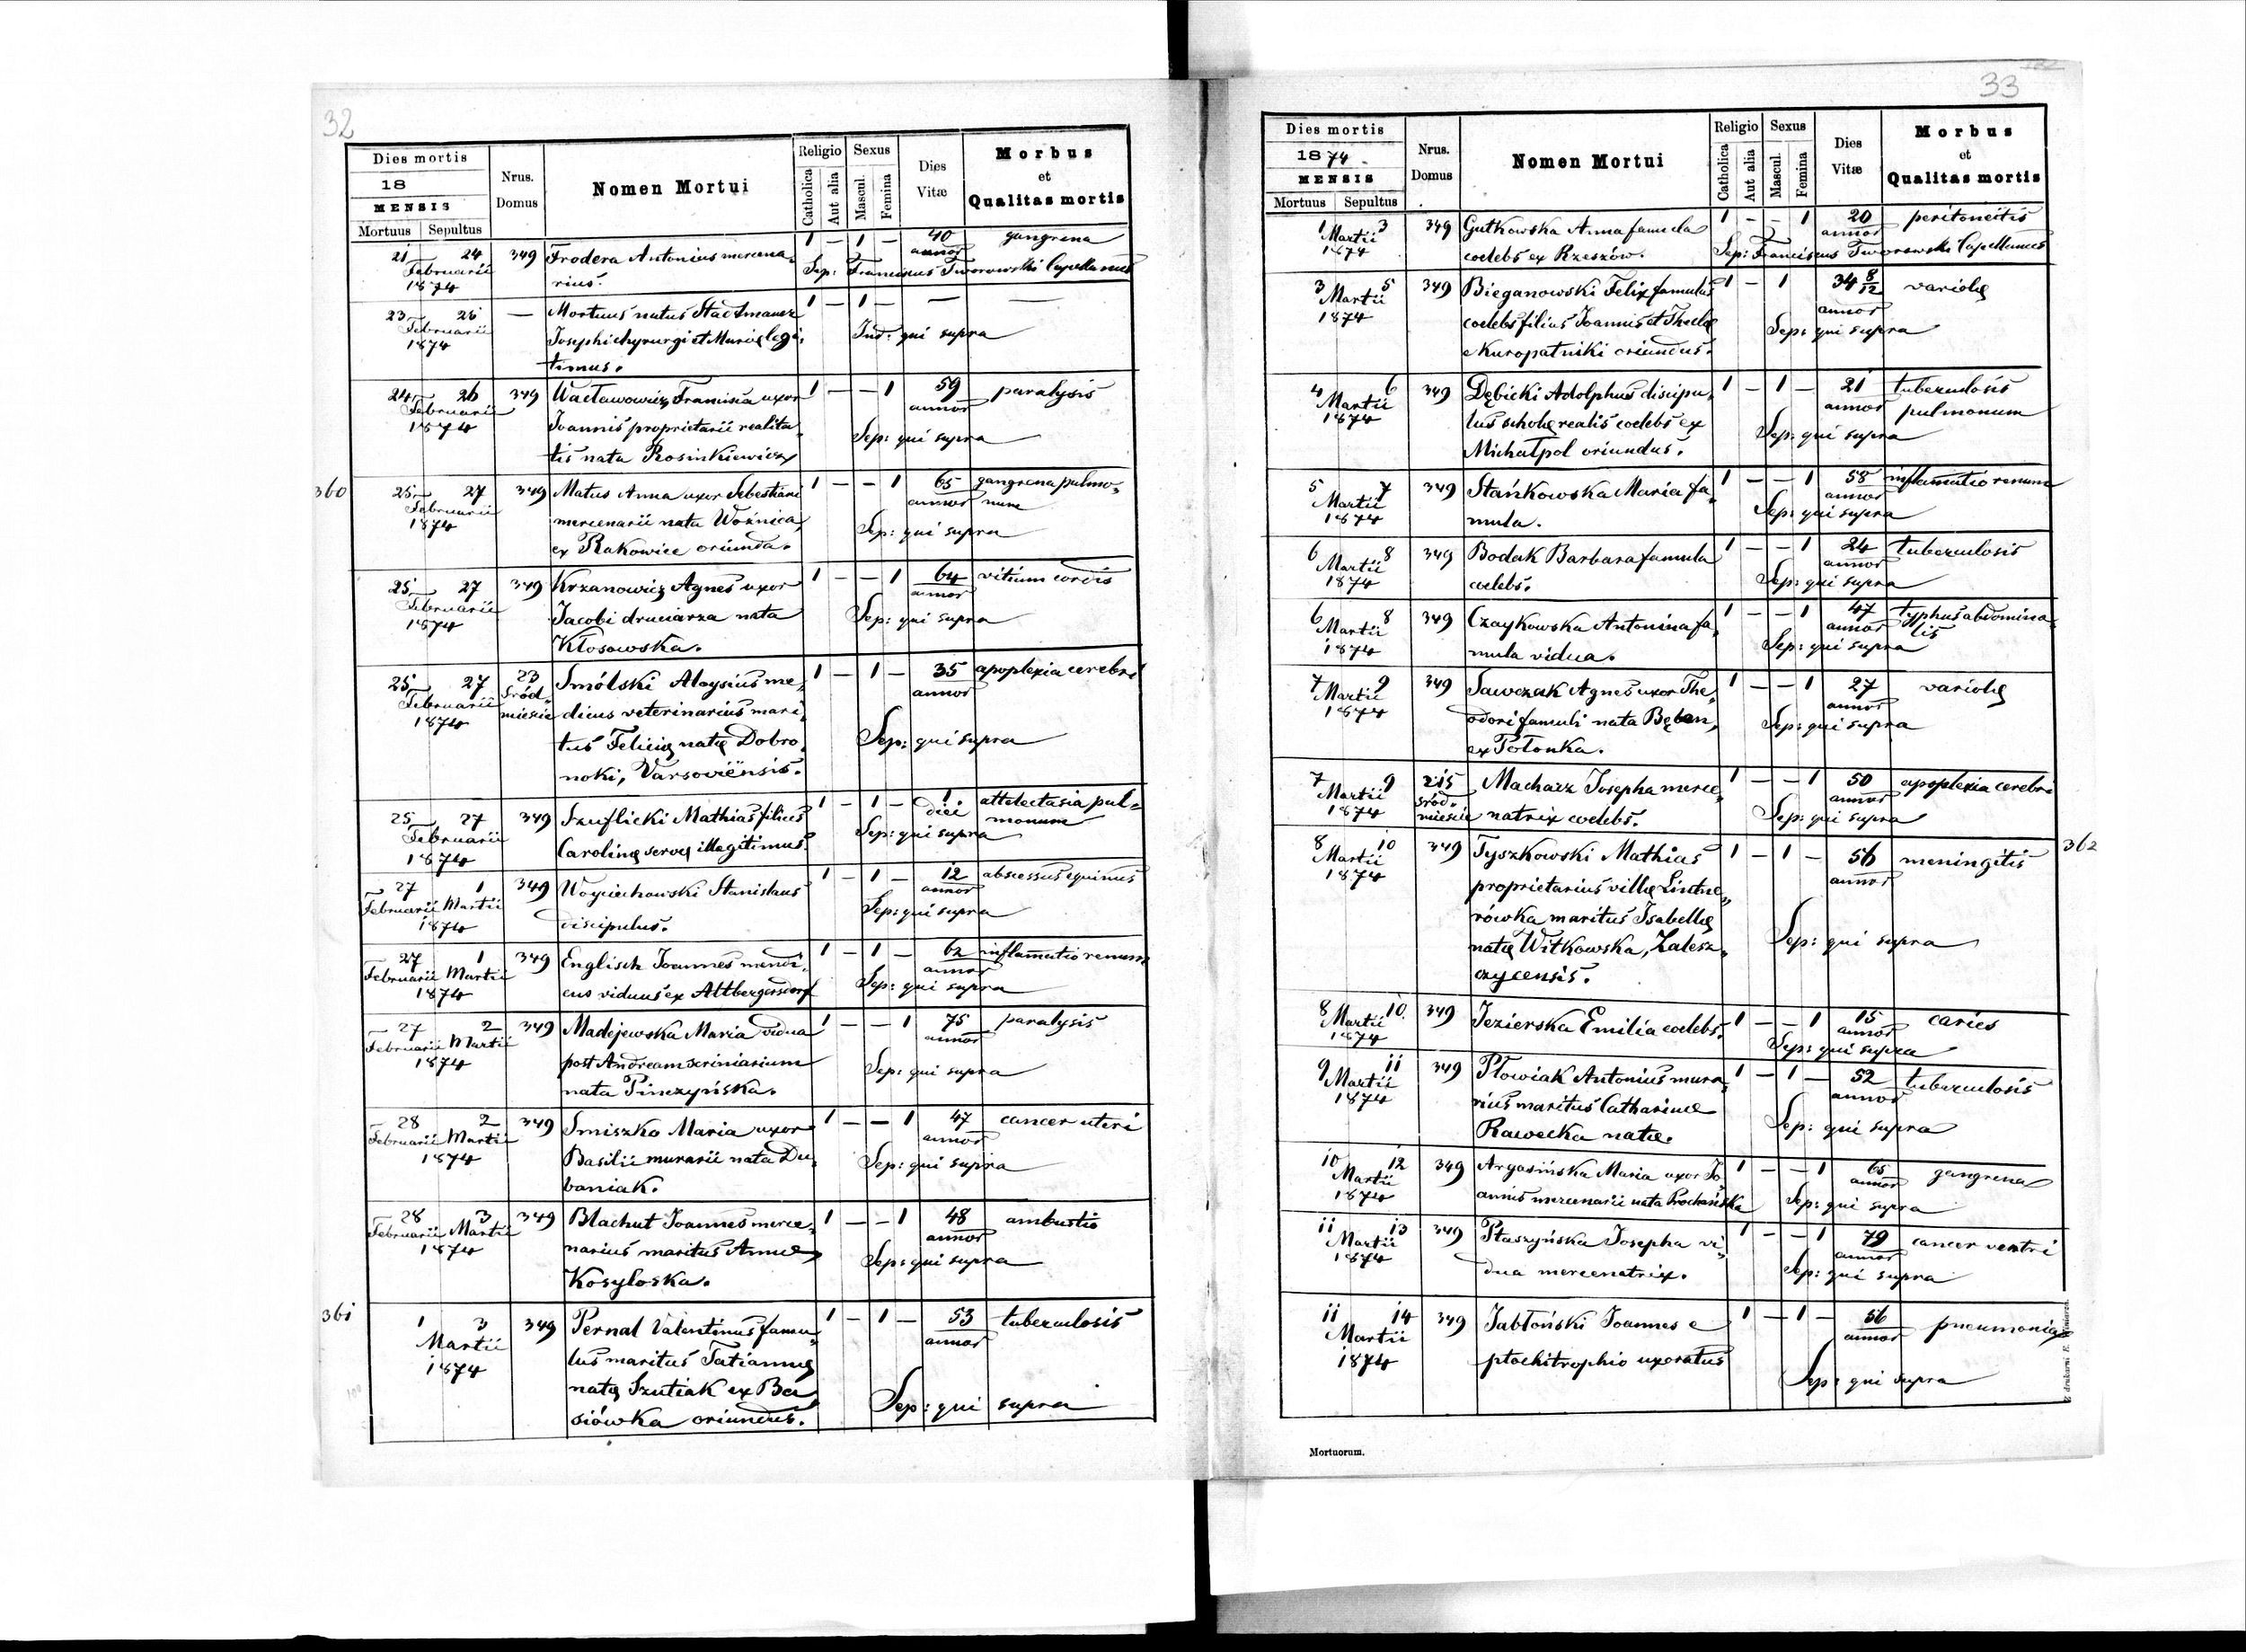 32
Dies mortis
18
MENSIS
Mortuus Sepultus
Nrus. Domus
Nomen Mortui
Religio
Catholica Aut alia
Sexus
Mascul. Femina
Dies Vitæ
Morbus
et
Qualitas mortis
21 24 349 Frodera Antonius mercena, 1 — 1 — 40 gangrena
Februarii rius. annor
1874 Sep: Franciscus Tworowski Capellanus
23 26 — Mortuus natus Stadtmauer 1 — 1 — — —
Februarii Josephi chyrurgi et Marię legi, Ind: qui supra
1874 timus.
24 26 349 Wacławowicz Francisca uxor 1 — — 1 59 paralysis
Februarii Joannis proprietarii realita, annor
1874 tis nata Rosinkiewicz Sep: qui supra
360 25 27 349 Matus Anna uxor Sebestiani 1 — — 1 65 gangrena pulmo,
Februarii mercenarii nata Woźnica, annor num
1874 ex Rakowice oriunda. Sep: qui supra
25 27 349 Krzanowicz Agnes uxor 1 — — 1 64 vitium cordis
Februarii Jacobi druciarza nata annor
1874 Kłosowska. Sep: qui supra
25 27 23 Smólski Aloysius me, 1 — 1 — 35 apoplexia cerebri
Februarii śród dicus veterinarius mari, annor
1874 mieście tus Felicię natę Dobro,
noki, Varsoviënsis. Sep: qui supra
25 27 349 Szuflicki Mathias filius 1 — 1 — 1 attelectasia pul-
Februarii Carolinę servę illegitimus. diei monum
1874 Sep: qui supra
27 1 349 Woyciechowski Stanislaus 1 — 1 — 12 abscessus equinus
Februarii Martii discipulus. annor
1874 Sep: qui supra
27 1 349 Englisch Joannes mendi, 1 — 1 — 62 inflamatio renum
Februarii Martii cus viduus ex Altbergersdorf annor
1874 Sep: qui supra
27 2 349 Madejewska Maria vidua 1 — — 1 75 paralysis
Februarii Martii post Andream scriniarium annor
1874 nata Pinczyńska. Sep: qui supra
28 2 349 Smiszko Maria uxor 1 — — 1 47 cancer uteri
Februarii Martii Basilii murarii nata Du, annor
1874 baniak. Sep: qui supra
28 3 349 Blachut Joannes merce, 1 — — 1 48 ambustio
Februarii Martii narius maritus Annae annor
1874 Kosyloska. Sep: qui supra
361 1 3 349 Pernal Valentinus famu, 1 — 1 — 53 tuberculosis
Martii lus maritus Tatiannę annor
1874 natę Szutiak ex Ba
siówka oriundus. Sep: qui supra
33
Dies mortis
1874
MENSIS
Mortuus Sepultus
Nrus. Domus
Nomen Mortui
Religio
Catholica Aut alia
Sexus
Mascul. Femina
Dies Vitæ
Morbus
et
Qualitas mortis
1 3 349 Gutkowska Anna famula 1 — — 1 20 peritoneitis
Martii coelebs ex Rzeszów. annor
1874 Sep: Franciscus Tworowski Capellanus
3 5 349 Bieganowski Felix famulus 1 — 1 34 8/12 variolę
Martii coelebs filius Joannis et Theclę annor
1874 e Kuropatniki oriundus. Sep: qui supra
4 6 349 Dębicki Adolphus discipu, 1 — 1 — 21 tuberculosis
Martii lus scholę realis coelebs ex annor pulmonum
1874 Michałpol oriundus. Sep: qui supra
5 7 349 Stańkowska Maria fa, 1 — — 1 58 inflamatio renum
Martii mula. annor
1874 Sep: qui supra
6 8 349 Bodak Barbara famula 1 — — 1 24 tuberculosis
Martii coelebs. annor
1874 Sep: qui supra
6 8 349 Czaykowska Antonina fa, 1 — — 1 47 typhus abdomina,
Martii mula vidua. annor lis
1874 Sep: qui supra
7 9 349 Sawczak Agnes uxor The, 1 — — 1 27 variolę
Martii odori famuli nata Bęben, annor
1874 ex Połonka. Sep: qui supra
7 9 215 Macharz Josepha merce, 1 — — 1 50 apoplexia cerebri
Martii śród. natrix coelebs. annor
1874 mieście Sep: qui supra
8 10 349 Tyszkowski Mathias 1 — 1 — 56 meningitis 362
Martii proprietarius villę Lindne, annor
1874 rówka maritus Isabellę
natę Witkowska, Zalesz, Sep: qui supra
czycensis.
8 10. 349 Jezierska Emilia coelebs. 1 — — 1 15 caries
Martii annor
1874 Sep: qui supra
9 11 349 Płowiak Antonius mura, 1 — 1 — 52 tuberculosis
Martii rius maritus Catharinae annor
1874 Rawecka natae. Sep: qui supra
10 12 349 Argasińska Maria uxor Jo, 1 — — 1 65 gangrena
Martii annis mercenarii nata Prochańska annor
1874 Sep: qui supra
11 13 349 Ptaszyńska Josepha vi, 1 — — 1 79 cancer ventri
Martii dua mercenatrix. annor
1874 Sep: qui supra
11 14 349 Jabłoński Joannes e 1 — 1 — 56 pneumonia
Martii ptochitrophio uxoratus annor
1874 Sep: qui supra
Z drukarni E. Winiarza.
Mortuorum.